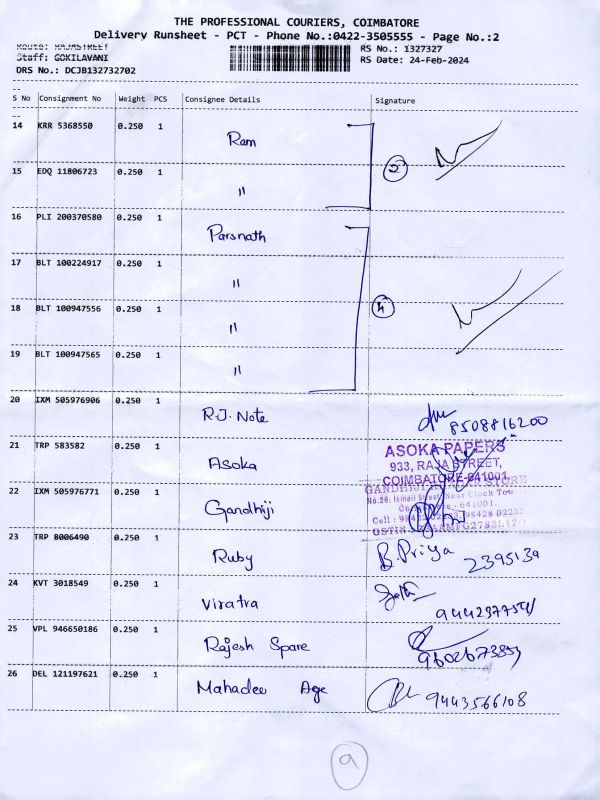 THE PROFESSIONAL COURIERS, COIMBATORE
Delivery Runsheet - PCT - Phone No.:0422-3505555 - Page No.:2
Route: RAJASTREET
RS No.: 1327327
Staff: GOKILAVANI
RS Date: 24-Feb-2024
DRS No.: DCJB132732702
S No Consignment No Weight PCS Consignee Details Signature
14 KRR 5368550 0.250 1 Ram
15 EDQ 11806723 0.250 1 "
16 PLI 200370580 0.250 1 Parsnath
17 BLT 100224917 0.250 1 "
18 BLT 100947556 0.250 1 " 4
19 BLT 100947565 0.250 1 "
20 IXM 505976906 0.250 1 R.J. Note 8508816200
21 TRP 583582 0.250 1 Asoka
ASOKA PAPERS
933, RAJA STREET,
COIMBATORE-641001.
22 IXM 505976771 0.250 1 Gandhiji
No.26, Ismail Street, Near Clock Tow
23 TRP 8006490 0.250 1 Ruby B. Priya 2395139
24 KVT 3018549 0.250 1 Viratra
25 VPL 946650186 0.250 1 Rajesh Spare
26 DEL 121197621 0.250 1 Mahadev Age 9443566108
9